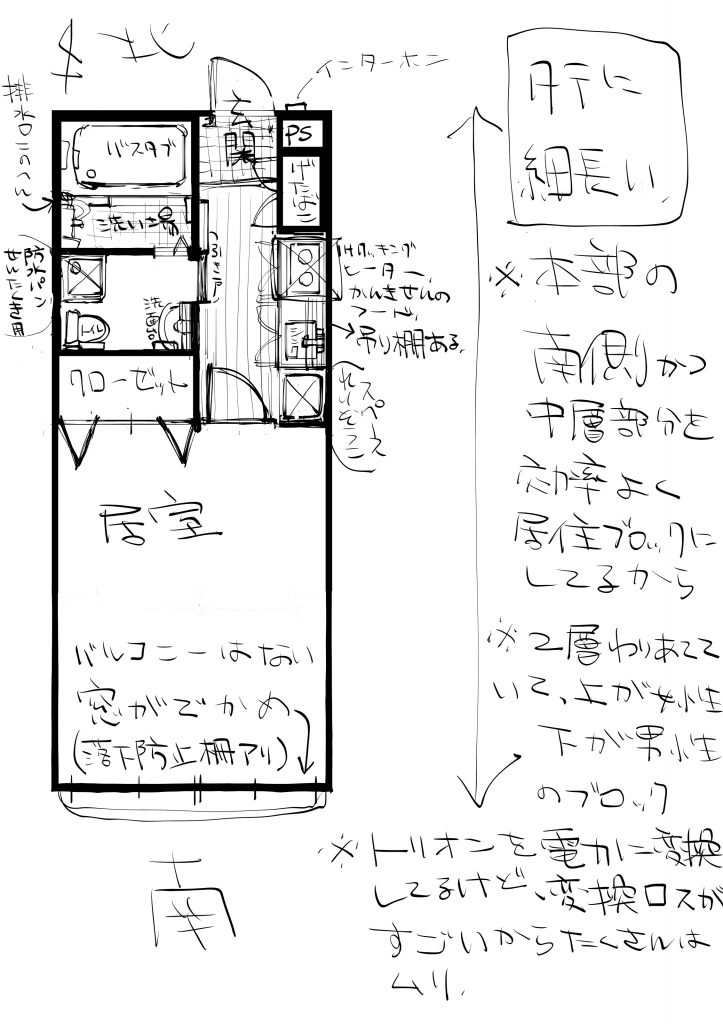 北
インターホン
排水口このへん
玄関
PS
げたばこ
バスタブ
洗い場
つりさげドア
防水パン
せんたくき用
洗面台
トイレ
IHクッキング
ヒーター、
かんきせんの
フード、
吊り棚ある。
シンク
れいぞうこ
スペース
クローゼット
居室
バルコニーはない
窓がでかめ
(落下防止柵アリ)
南
タテに
細長い
※本部の
南側かつ
中層部分を
効率よく
居住ブロックに
してるから
※2層わりあてて
いて、上が女性
下が男性
のブロック
※トリオンを電力に変換
してるけど、変換ロスが
すごいからたくさんは
ムリ.